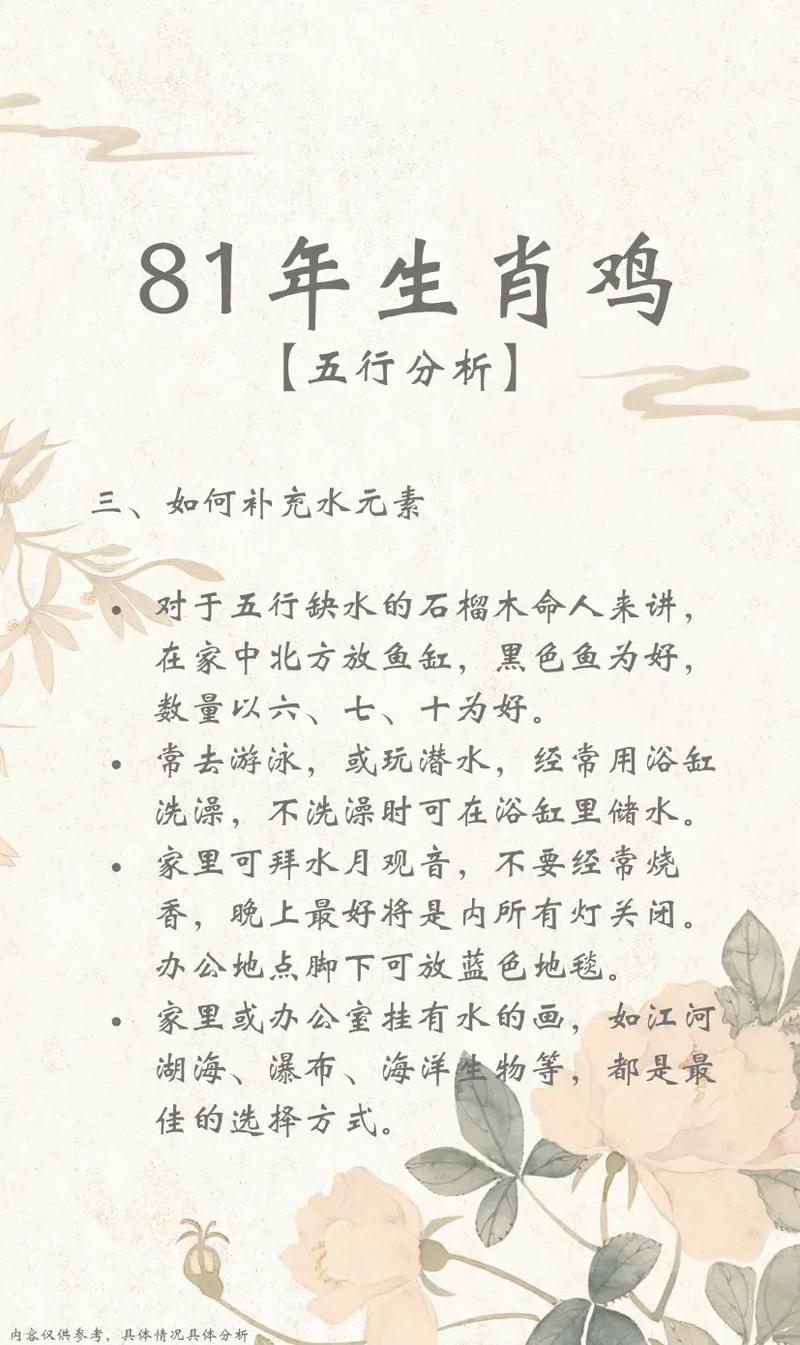 81年生肖鸡
【五行分析】
三、如何补充水元素
• 对于五行缺水的石榴木命人来讲，
在家中北方放鱼缸，黑色鱼为好，
数量以六、七、十为好。
• 常去游泳，或玩潜水，经常用浴缸
洗澡，不洗澡时可在浴缸里储水。
• 家里可拜水月观音，不要经常烧
香，晚上最好将是内所有灯关闭。
办公地点脚下可放蓝色地毯。
• 家里或办公室挂有水的画，如江河
湖海、瀑布、海洋生物等，都是最
佳的选择方式。
内容仅供参考，具体情况具体分析